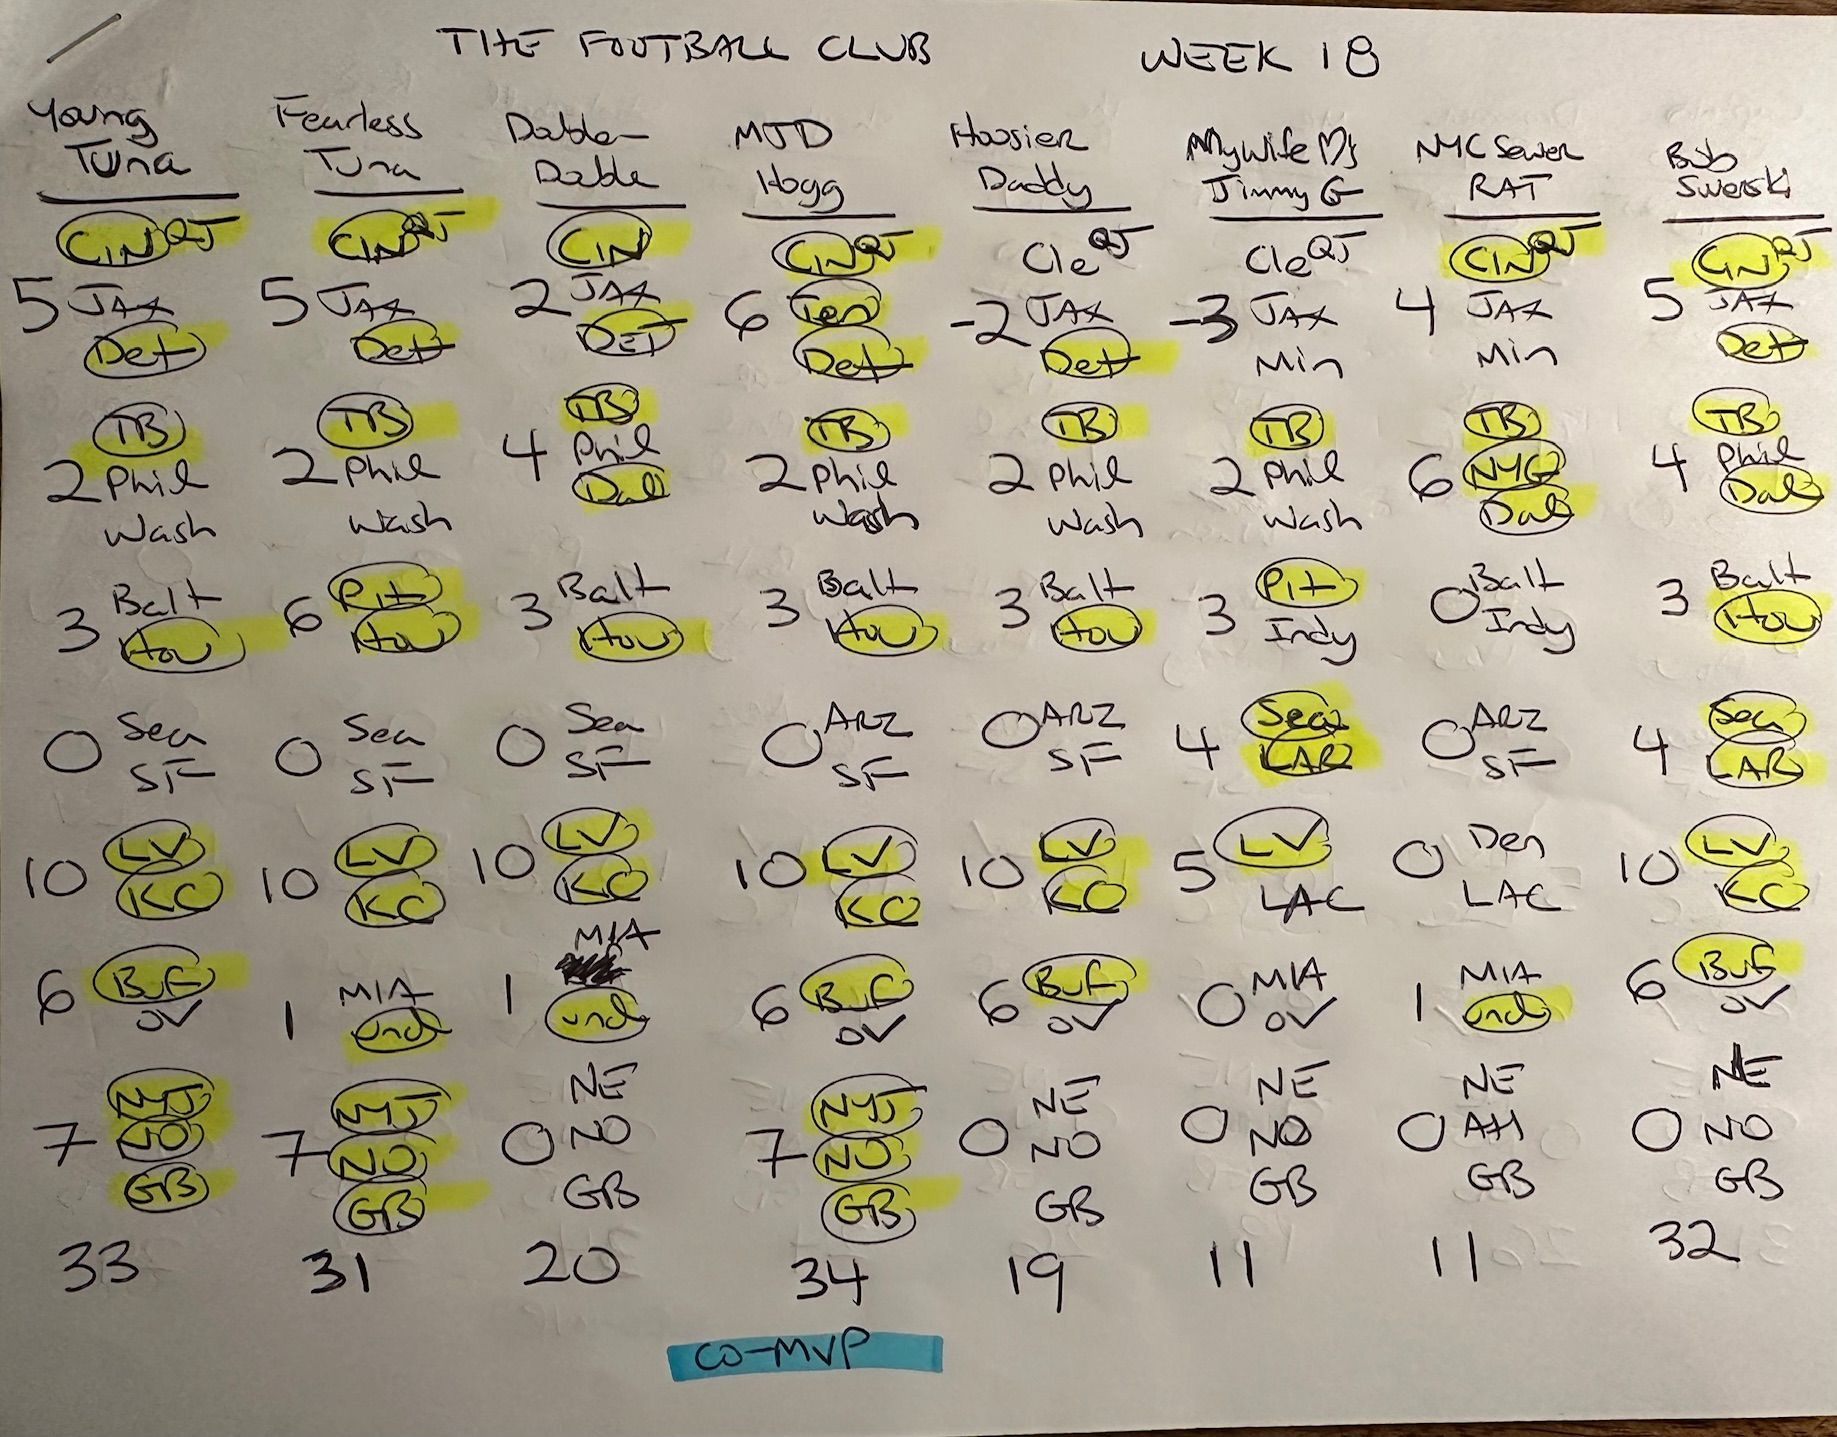 THE FOOTBALL CLUB WEEK 18
Young Tuna
Fearless Tuna
Double-Double
MJD Hogg
Hoosier Daddy
MyWife ♡s Jimmy G
NYC Sewer RAT
Bob Swerski
CIN QJ CIN QJ CIN CIN QJ Cle QJ Cle QJ CIN QJ CIN QJ
5 JAX 5 JAX 2 JAX 6 Ten -2 JAX -3 JAX 4 JAX 5 JAX
Det Det DET Det Det Min Min Det
TB TB TB TB TB TB TB TB
2 Phil 2 Phil 4 Phil 2 Phil 2 Phil 2 Phil 6 NYG 4 Phil
Wash Wash Dal Wash Wash Wash Dal Dal
3 Balt 6 Pit 3 Balt 3 Balt 3 Balt 3 Pit 0 Balt 3 Balt
Hou Hou Hou Hou Hou Indy Indy Hou
0 Sea 0 Sea 0 Sea 0 ARZ 0 ARZ 4 Sea 0 ARZ 4 Sea
SF SF SF SF SF LAR SF LAR
10 LV 10 LV 10 LV 10 LV 10 LV 5 LV 0 Den 10 LV
KC KC KC KC KC LAC LAC KC
6 Buf 1 MIA 1 MIA 6 Buf 6 Buf 0 MIA 1 MIA 6 Buf
OV und und OV OV OV und OV
NYJ NYJ NE NYJ NE NE NE NE
7 NO 7 NO 0 NO 7 NO 0 NO 0 NO 0 Atl 0 NO
GB GB GB GB GB GB GB GB
33 31 20 34 19 11 11 32
CO-MVP